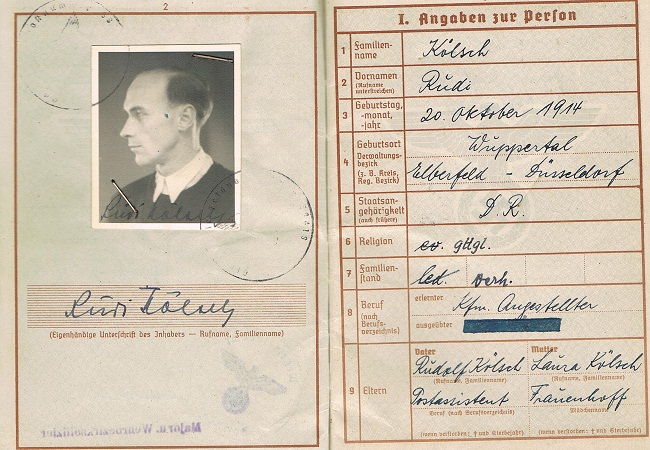 2
Rudi Kölsch
Rudi Kölsch
(Eigenhändige Unterschrift des Inhabers — Rufname, Familienname)
Major u. Wehrbezirksoffizier
I. Angaben zur Person
1 Familien-
name
Kölsch
2 Vornamen
(Rufname
unterstreichen)
Rudi
3 Geburtstag,
-monat,
-jahr
20. Oktober 1914
4 Geburtsort
Verwaltungs-
bezirk
(z. B. Kreis,
Reg. Bezirk)
Wuppertal
Elberfeld - Düsseldorf
5 Staatsan-
gehörigkeit
(auch frühere)
D. R.
6 Religion
ev. gttgl.
7 Familien-
stand
led. verh.
8 Beruf
(nach
Berufs-
verzeichnis)
erlernter
Kfm. Angestellter
ausgeübter
9 Eltern
Vater
Rudolf Kölsch
(Rufname, Familienname)
Postassistent
Beruf (nach Berufsverzeichnis)
(wenn verstorben: † und Sterbejahr)
Mutter
Laura Kölsch
(Rufname, Familienname)
Frauenhoff
Mädchenname
(wenn verstorben: † und Sterbejahr)